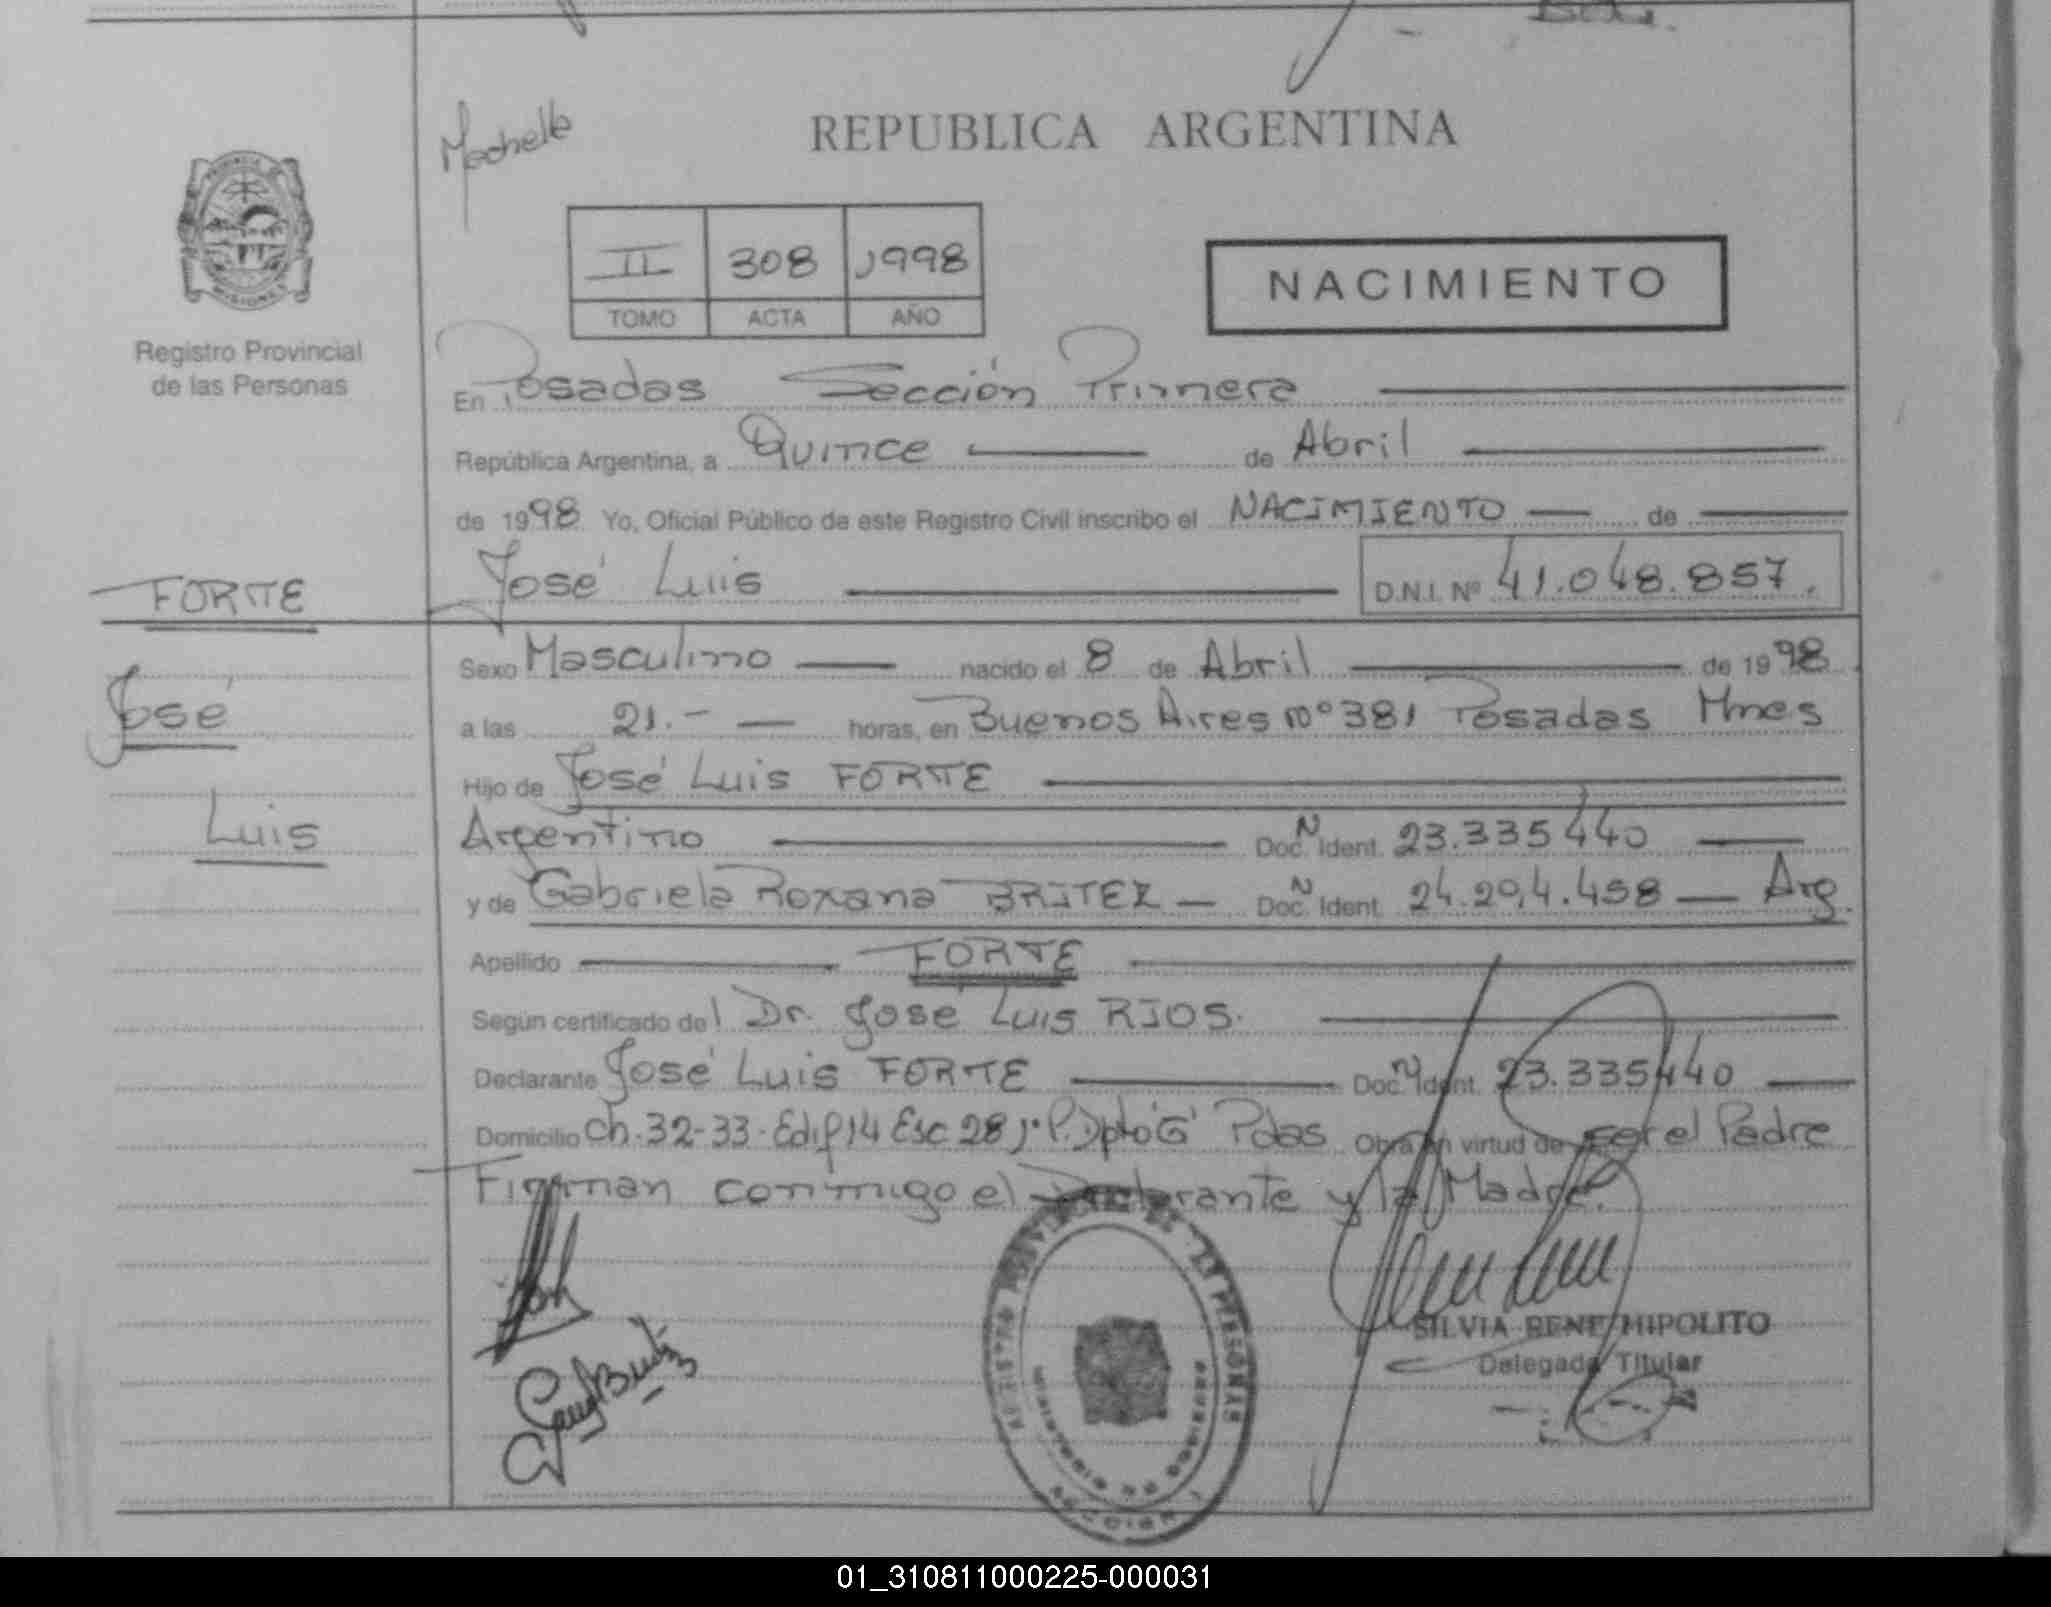 REPUBLICA ARGENTINA
II 308 1998
TOMO ACTA AÑO
NACIMIENTO
MISIONES
Registro Provincial
de las Personas
En Posadas Sección Primera
República Argentina, a Quince de Abril
de 1998 Yo, Oficial Público de este Registro Civil inscribo el NACIMIENTO de
José Luis D.N.I. Nº 41.048.857.
FORTE
José
Luis
Sexo Masculino nacido el 8 de Abril de 1998
a las 21.- horas, en Buenos Aires nº 381 Posadas Mnes
Hijo de José Luis FORTE
Argentino Doc. N Ident. 23.335440
y de Gabriela Roxana BRITEZ Doc. N Ident. 24.204.458 Arg.
Apellido FORTE
Según certificado del Dr. José Luis RIOS.
Declarante José Luis FORTE Doc. N Ident. 23.335440
Domicilio Ch. 32-33-Edif 14 Esc 28 1º P. Dpto "G" Pdas Obra en virtud de ser el Padre
Firman conmigo el Declarante y la Madre.
SILVIA RENE HIPOLITO
Delegada Titular
01_310811000225-000031